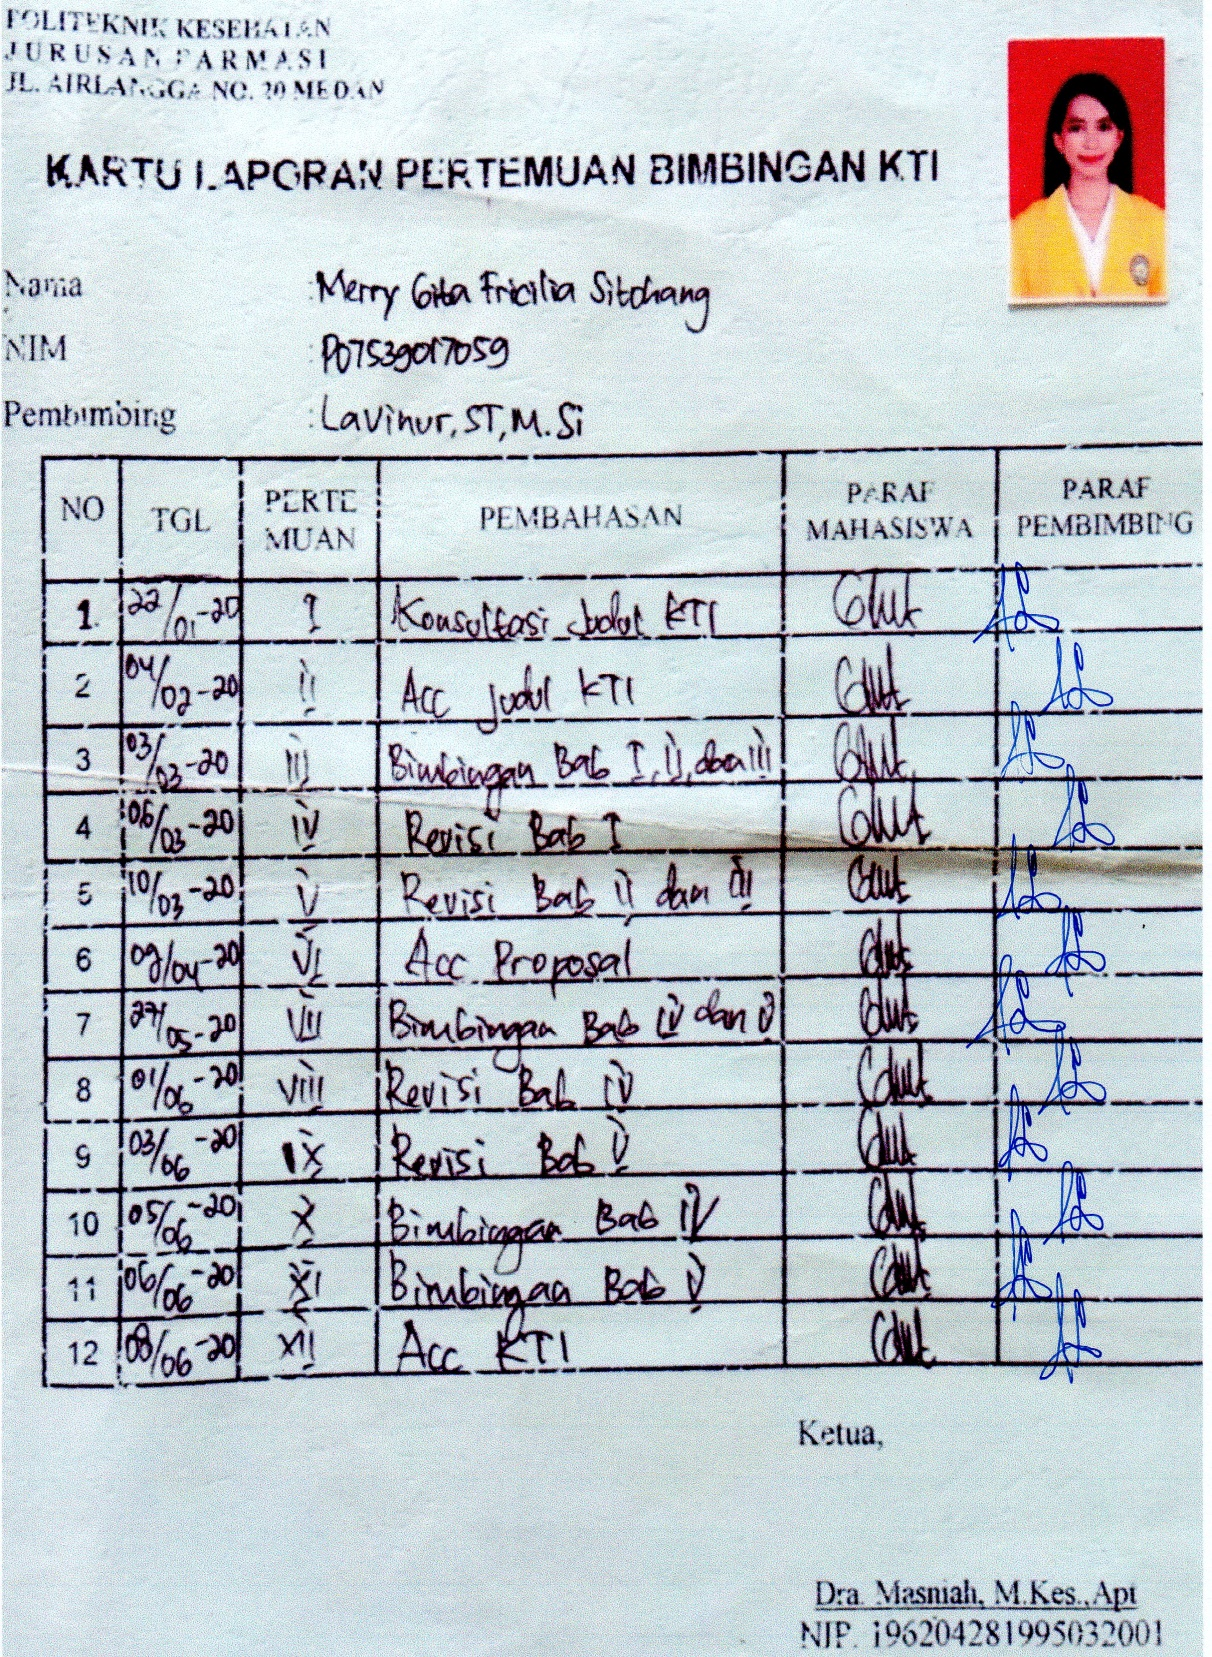 POLITEKNIK KESEHATAN
JURUSAN FARMASI
JL. AIRLANGGA NO. 20 MEDAN
KARTU LAPORAN PERTEMUAN BIMBINGAN KTI
Nama : Merry Gita Fricilia Sitohang
NIM : P07539017059
Pembimbing : Lavinur, ST, M.Si
NO TGL PERTE MUAN PEMBAHASAN PARAF MAHASISWA PARAF PEMBIMBING
1. 22/01-20 I Konsultasi Judul KTI
2 04/02-20 II Acc Judul KTI
3 03/03-20 III Bimbingan Bab I, II, dan III
4 06/03-20 IV Revisi Bab I
5 10/03-20 V Revisi Bab II dan III
6 09/04-20 VI Acc Proposal
7 27/05-20 VII Bimbingan Bab IV dan V
8 01/06-20 VIII Revisi Bab IV
9 03/06-20 IX Revisi Bab V
10 05/06-20 X Bimbingan Bab IV
11 06/06-20 XI Bimbingan Bab V
12 08/06-20 XII Acc KTI
Ketua,
Dra. Masniah, M.Kes., Apt
NIP. 196204281995032001